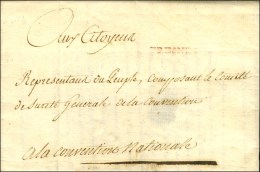 Aux Citoyens
Representans du Peuple, composant le Comité
de Sureté Generale a la convention
a la convention Nationale